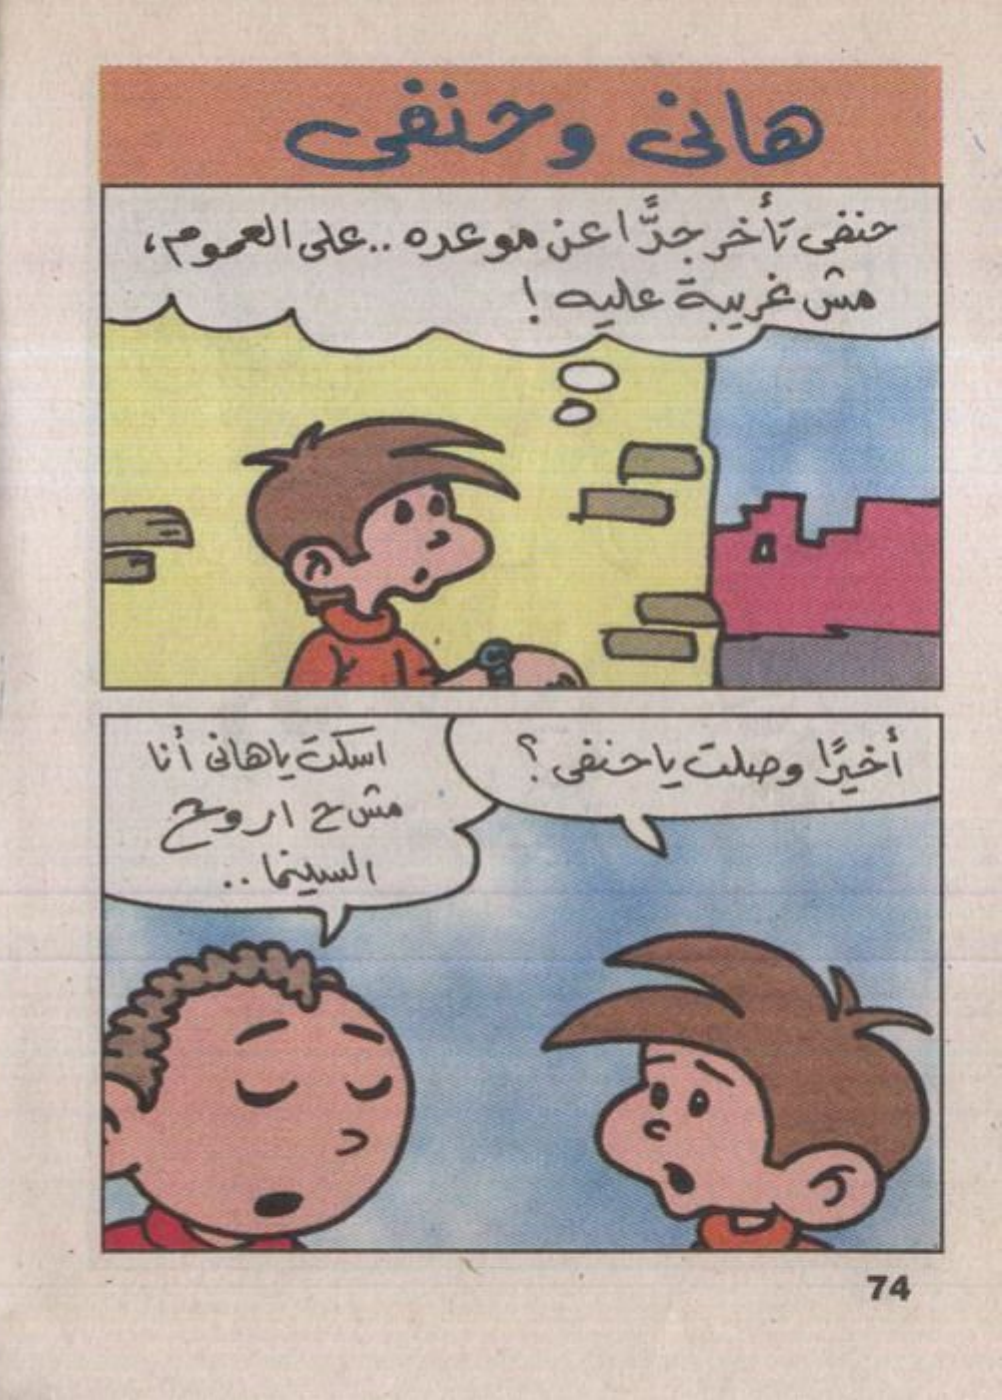 هانى وحنفى
حنفى تأخر جدًّا عن موعده .. على العموم،
مش غريبة عليه !
أخيرًا وصلت ياحنفى ؟
اسكت ياهانى أنا
مش ح اروح
السينما ..
74